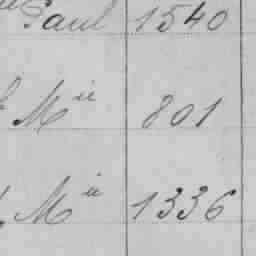 Paul 1540
M ii 801
M ii 1336